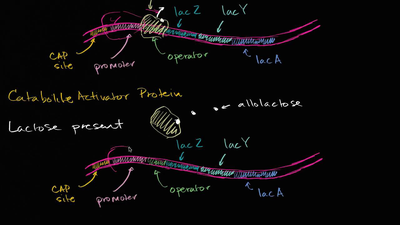 lac Z
lac Y
CAP site
promoter
operator
lac A
Catabolite Activator Protein
Lactose present
allolactose
lac Z
lac Y
CAP site
promoter
operator
lac A